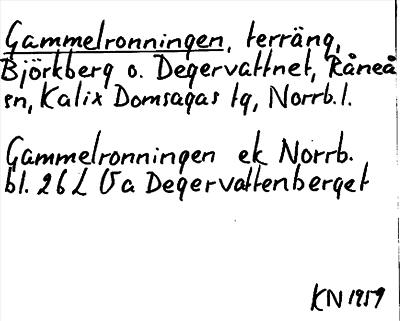 Gammelronningen, terräng,
Björkberg o. Degervattnet, Råneå
sn, Kalix Domsagas tg, Norrb. l.
Gammelronningen ek Norrb.
bl. 26 L Va Degervattenberget
KN 1959